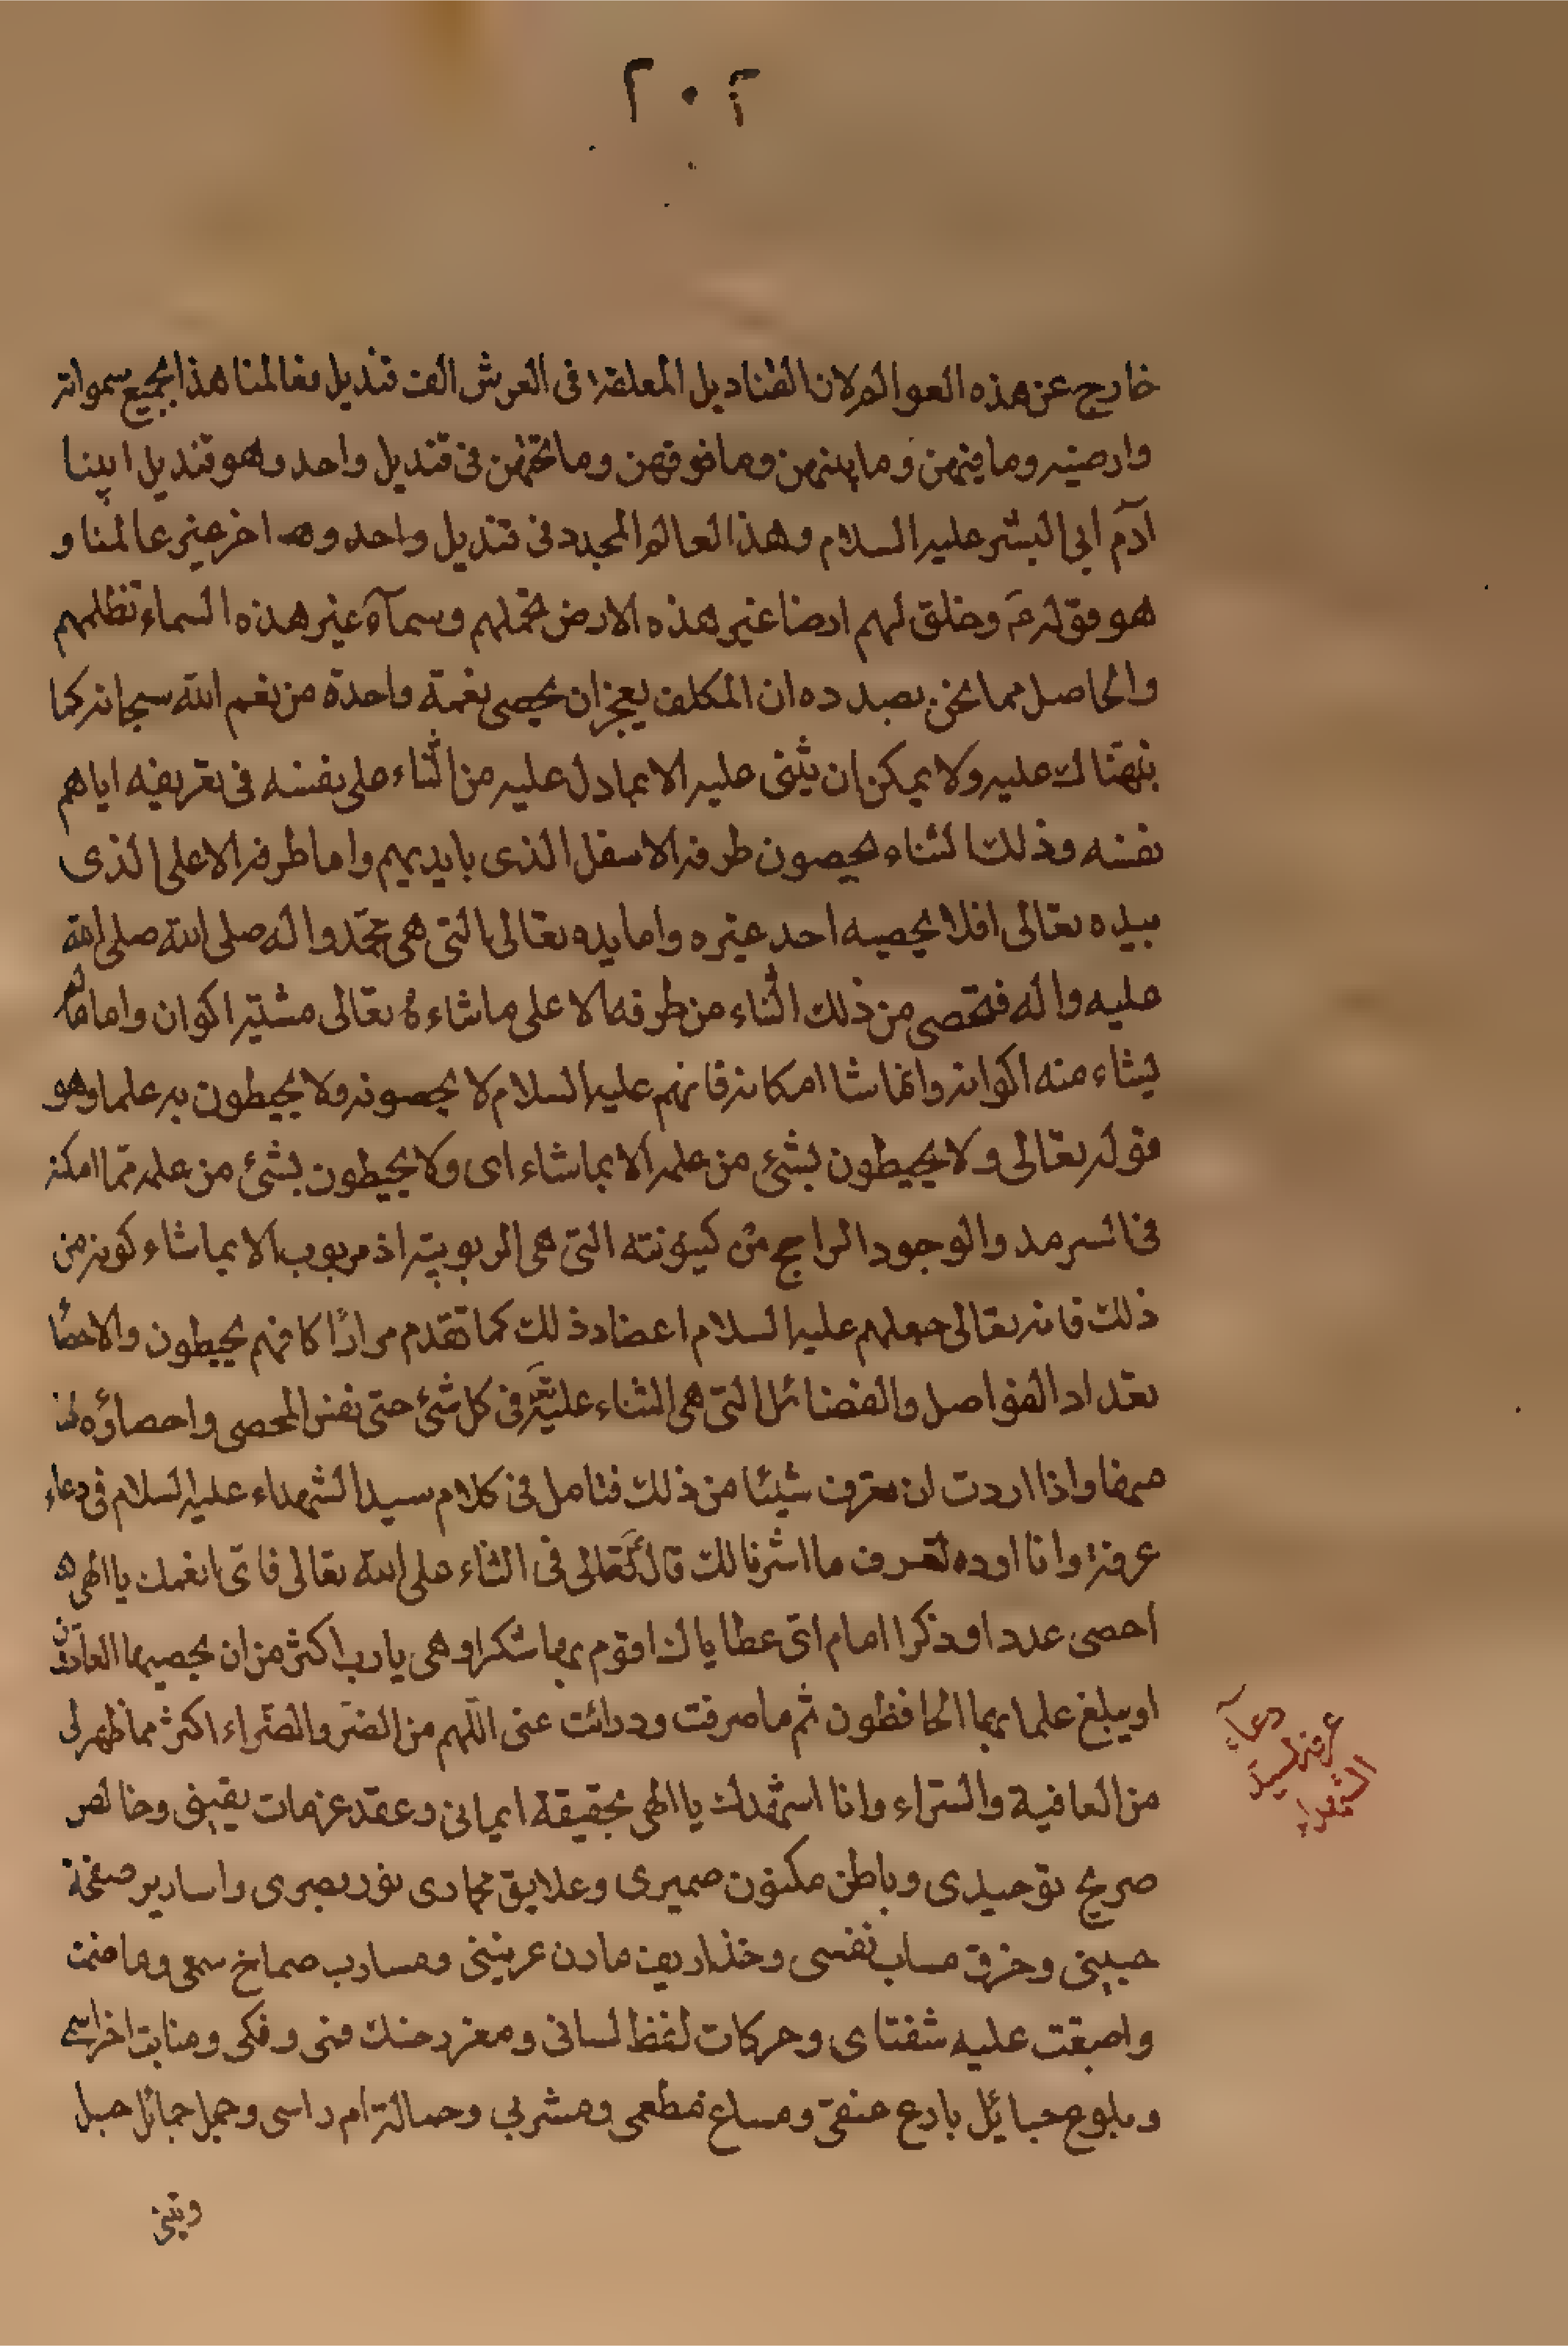 ٢٠٢
خارج عن هذه العوالم لان القناديل المعلقة فى العرش الف قنديل فعالمنا هذا بجميع سمواته
وارضيه وما فيهن وما بينهن وما فوقهن وما تحتهن فى قنديل واحد وهو قنديل ابينا
آدم ابى البشر عليه السلام وهذا العالم المجدد فى قنديل واحد وهو اخر غير عالمنا و
هو قوله وخلق لهم ارضا غير هذه الارض تحملهم وسمآء غير هذه السماء تظلهم
والحاصل مما نحن بصدده ان المكلف يعجز ان يحصى نعمة واحدة من نعم الله سبحانه كما
نبهناك عليه ولا يمكن ان يثنى عليه الا بما دل عليه من الثناء على نفسه فى تعريفه اياهم
نفسه وذلك الثناء يحصون طرفه الاسفل الذى بايديهم واما طرفه الاعلى الذى
بيده تعالى فلا يحصيه احد غيره واما يده تعالى التى هى محمد واله صلى الله صلى الله
عليه واله فتحصى من ذلك الثناء من طرفه الاعلى ما شاء تعالى مشية اكوان واما ما لم
يشاء منه اكوانه وانما شا امكانه فانهم عليه السلام لا يحصونه ولا يحيطون به علما وهو
قوله تعالى ولا يحيطون بشئ من علمه الا بما شاء اى ولا يحيطون بشئ من علمه مما امكنه
فى السرمد والوجود الراجح من كينونته التى هى الربوبية اذ مربوب الا بما شاء كونه من
ذلك فانه تعالى جعلهم عليه السلام اعضاد ذلك كما تقدم مرارًا كانهم يحيطون والاحصا
تعداد الفواضل والفضائل التى هى الثناء عليه فى كل شئ حتى نفس المحصى واحصاؤه
منها واذا اردت ان تعرف شيئا من ذلك فتامل فى كلام سيد الشهداء عليه السلام فى دعاء
عرفة وانا اورده لتعرف ما اشرنا لك قال فى الثناء على الله تعالى فاى انعمك يا الهى
احصى عددا وذكرا امام اى عطاياك اقوم بها شكرا وهى يا رب اكثر من ان يحصيها العادون
او يبلغ علما بها الحافظون ثم ما صرفت ودرائت عنى اللهم من الضر والضراء اكثر مما ظهر لى
من العافية والسراء وانا اشهدك يا الهى بحقيقة ايمانى وعقد عزمات يقينى وخالص
صريح توحيدى وباطن مكنون ضميرى وعلايق مجارى نور بصرى واسارير صفحة
جبينى وخرق مسارب نفسى وخذاريف مارن عرنينى ومسارب صماخ سمعى وما ضمت
واصبقت عليه شفتاى وحركات لفظ لسانى ومغرز حنك فمى وفكى ومنابت اضراسى
وبلوع حبائل بارع عنقى ومساغ مطعمى ومشربى وحمالة ام راسى وجمل حمائل حبل
وتينى
دعآء
عرفة لسيد
الشهداء